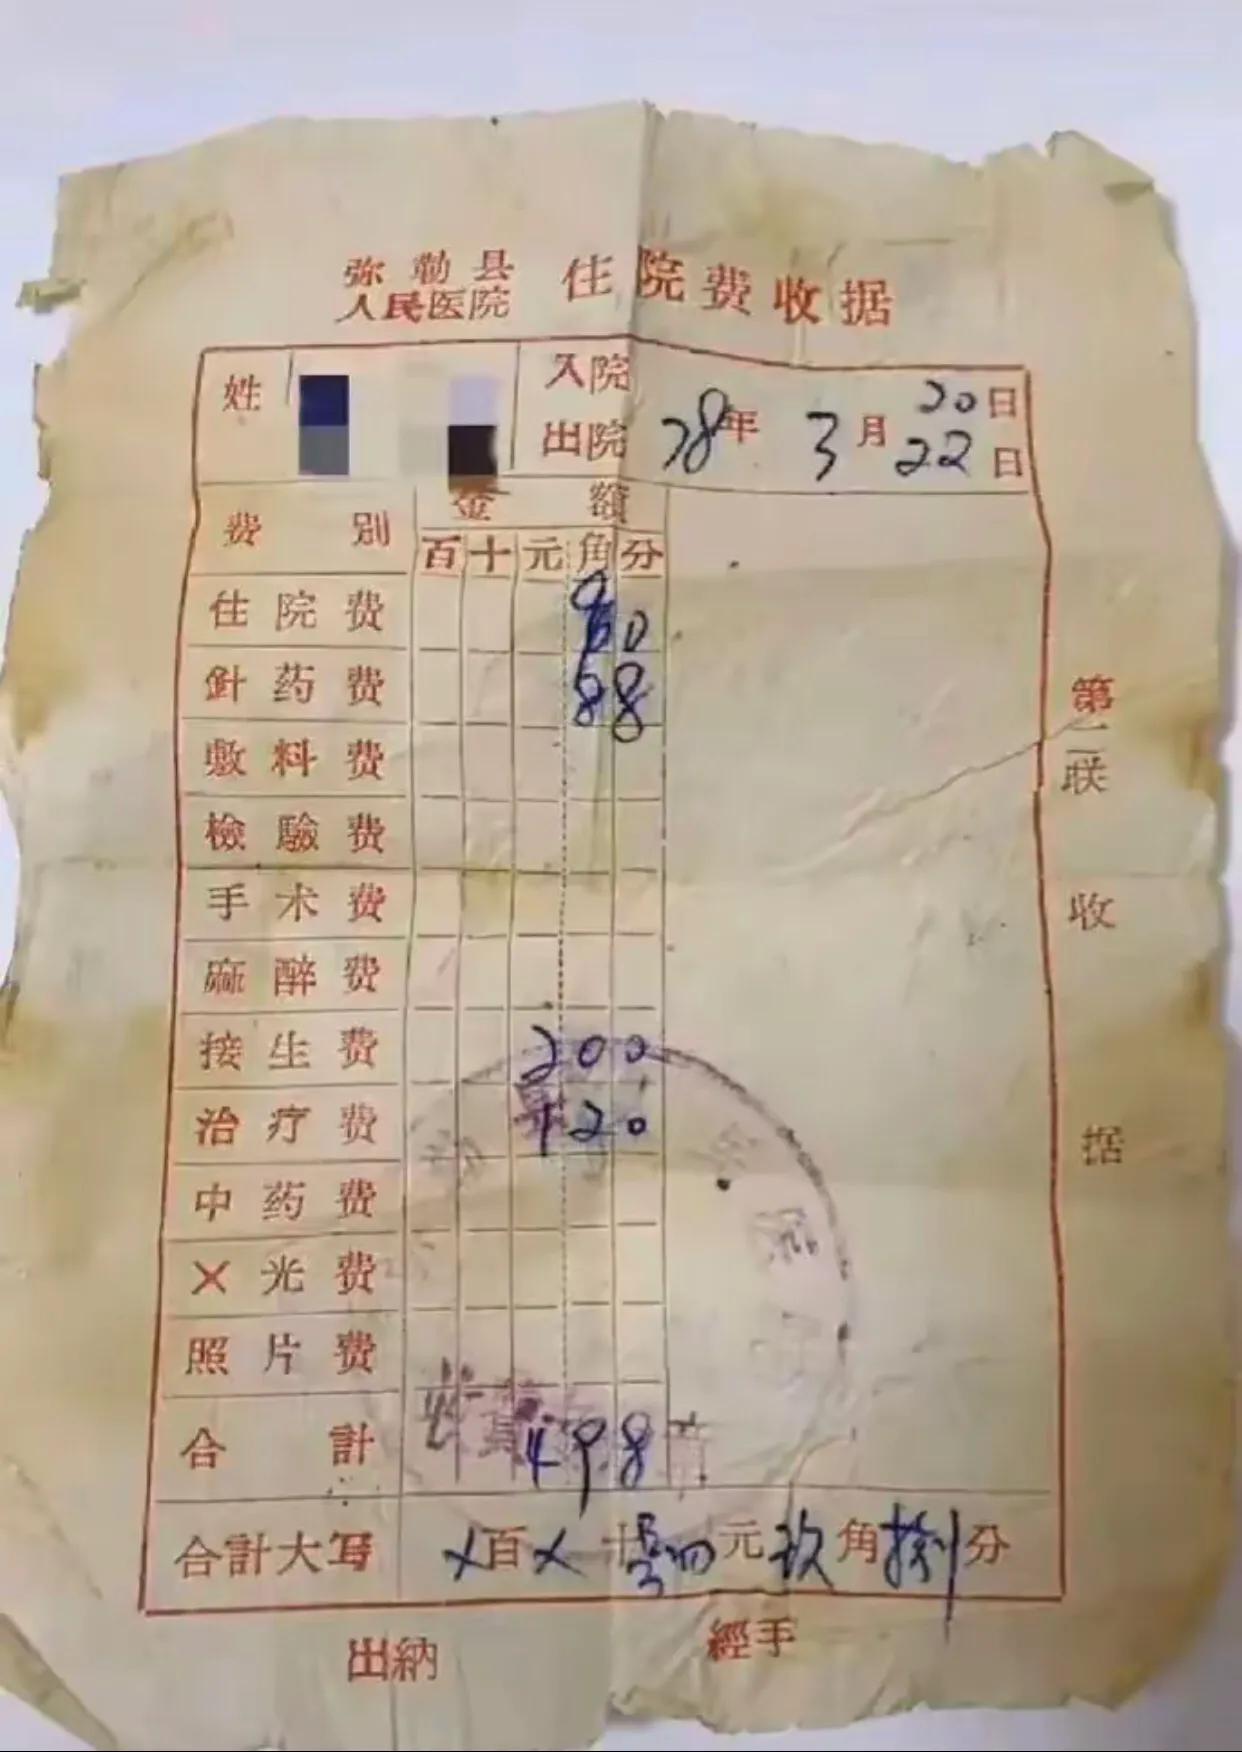 弥勒县
人民医院 住院费收据
姓
入院
出院
78年 3月 20日
22日
费别 金额
百十元角分
住院费 90
針药费 88
敷料费
檢驗费
手术费
麻醉费
接生费 200
治疗费 120
中药费
X光费
照片费
合計 498
合計大写 X百X十肆元玖角捌分
出納 經手
第二联 收据